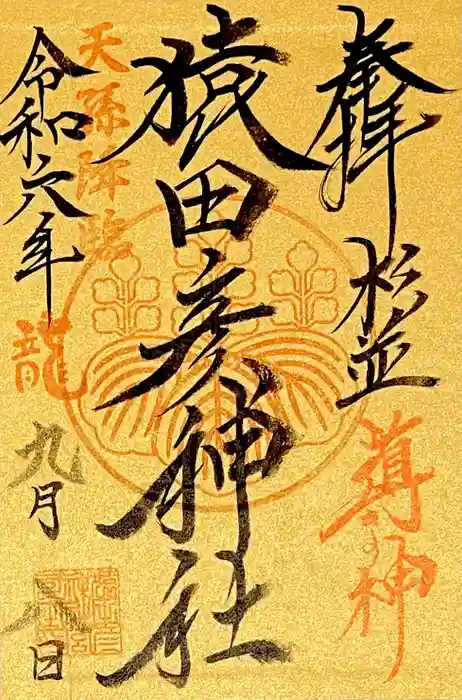 奉拝 松並
導神
猿田彦神社
天孫降臨
龍
令和六年
九月八日